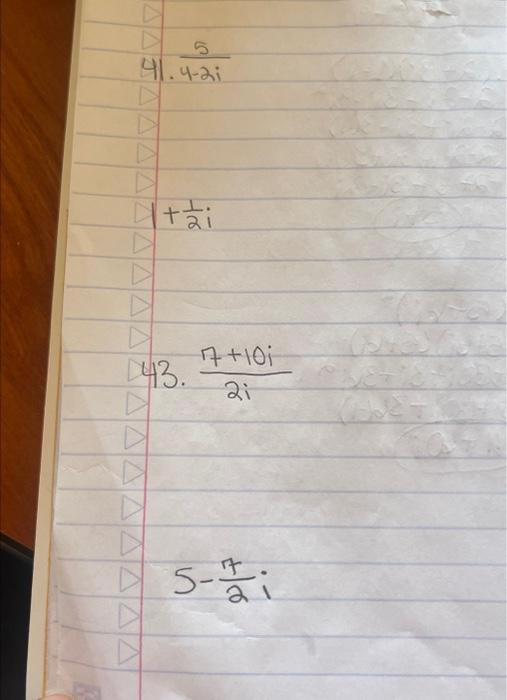 41. 5/(4-2i)
1+1/2i
43. (7+10i)/(2i)
5-7/2i